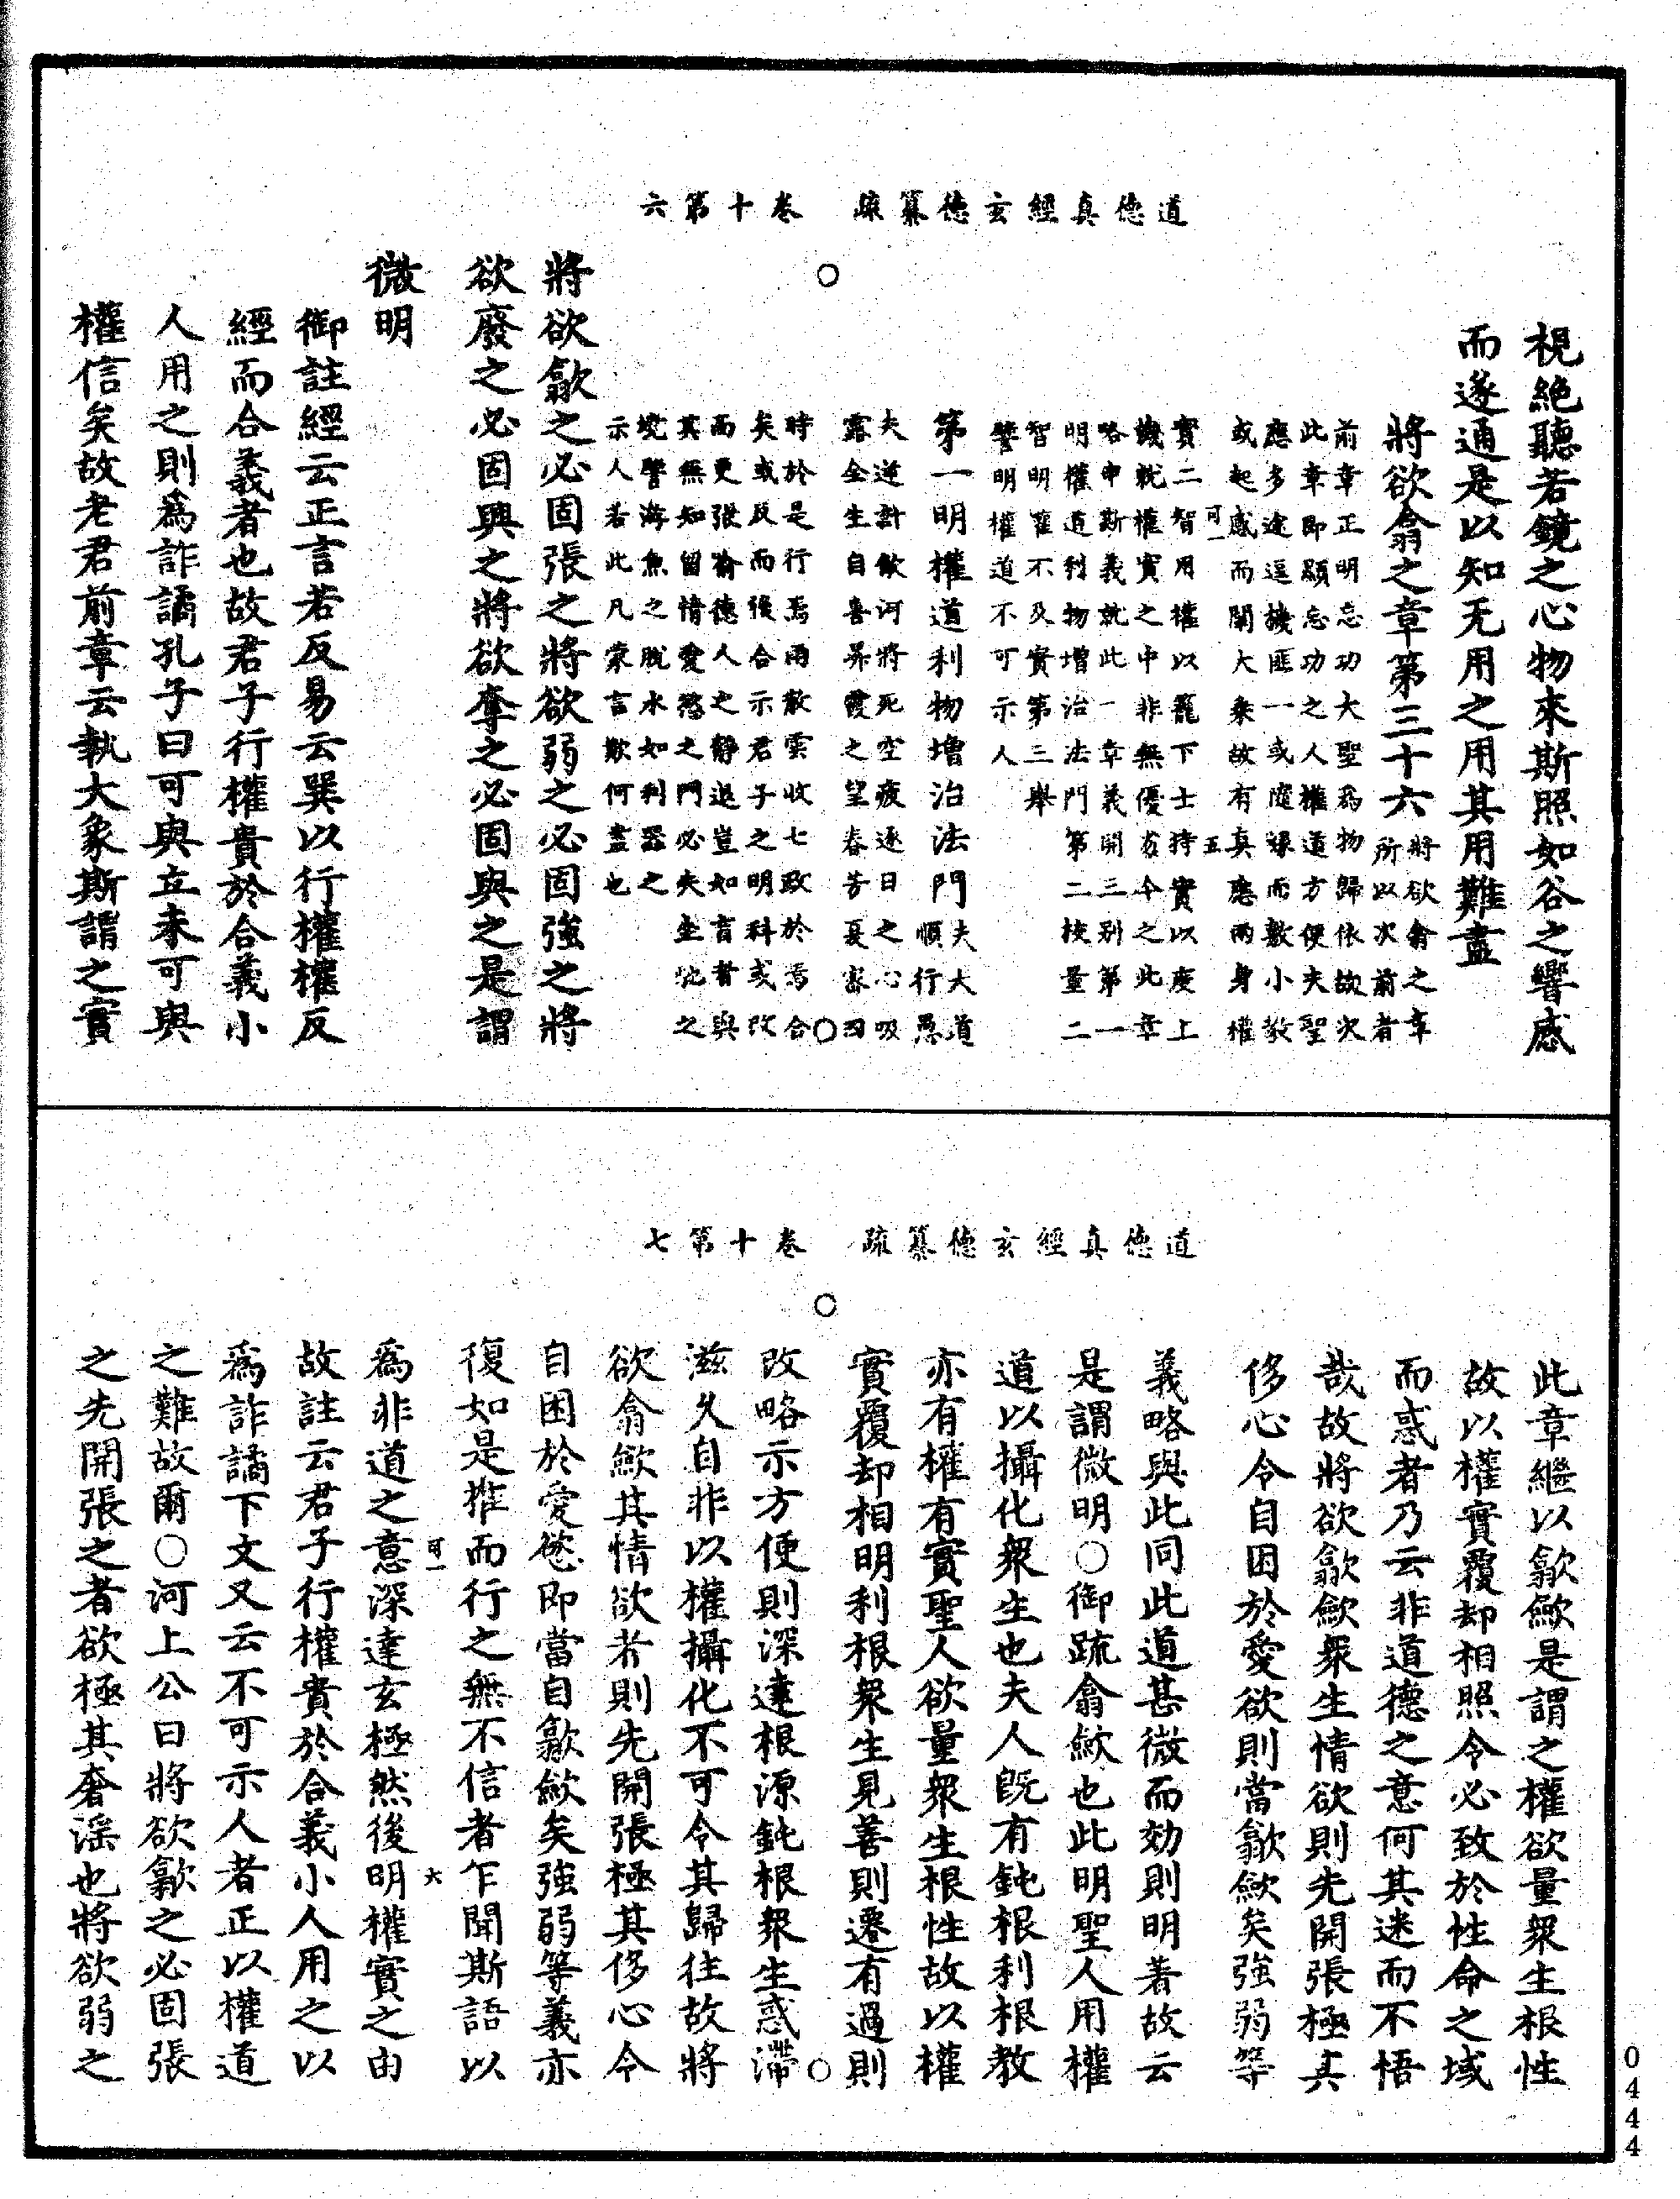 道德真經玄德纂疏　卷十第六
視絶聽若鏡之心物來斯照如谷之響感
而遂通是以知无用之用其用難盡
將欲翕之章第三十六
將欲翕之章
所以次前者
前章正明忘功大聖爲物歸依故次
此章即顯忘功之人權道方便夫聖
應多途逗機匪一或隨緣而敷小教
或起感而闡大乘故有真應兩身權
可一
五
實二智用權以籠下士持實以度上
機就權實之中非無優劣今之此章
略申斯義就此一章義開三别第一
明權道利物增治法門第二挍量二
智明舊不及實第三舉
譬明權道不可示人
第一明權道利物增治法門
夫大道
順行愚
夫逆計飲河將死空疲逐日之心吸
露全生自喜昇霞之望春苦夏寒四
時於是行焉雨散雲收七政於焉合
矣或反而後合示君子之明科或改
而更張喻德人之静退豈如盲者與
其無知留情愛慾之門必失坐忘之
境譬海魚之脱水如利器之
示人若此凡蒙言欺何盡也
將欲歙之必固張之將欲弱之必固強之將
欲廢之必固興之將欲奪之必固與之是謂
微明
御註經云正言若反易云巽以行權權反
經而合義者也故君子行權貴於合義小
人用之則爲詐譎孔子曰可與立未可與
權信矣故老君前章云執大象斯謂之實
道德真經玄德纂疏　卷十第七
此章繼以歙歛是謂之權欲量衆生根性
故以權實覆却相照令必致於性命之域
而惑者乃云非道德之意何其迷而不悟
哉故將欲歙歛衆生情欲則先開張極其
侈心令自困於愛欲則當歙歛矣強弱等
義略與此同此道甚微而効則明著故云
是謂微明○御疏翕歛也此明聖人用權
道以攝化衆生也夫人旣有鈍根利根教
亦有權有實聖人欲量衆生根性故以權
實覆却相明利根衆生見善則遷有過則
改略示方便則深達根源鈍根衆生惑滯
滋久自非以權攝化不可令其歸往故將
欲翕歛其情欲者則先開張極其侈心令
自困於愛慾即當自歙歛矣強弱等義亦
復如是推而行之無不信者乍聞斯語以
可一
六
爲非道之意深達玄極然後明權實之由
故註云君子行權貴於合義小人用之以
爲詐譎下文又云不可示人者正以權道
之難故爾○河上公曰將欲歙之必固張
之先開張之者欲極其奢淫也將欲弱之
0444